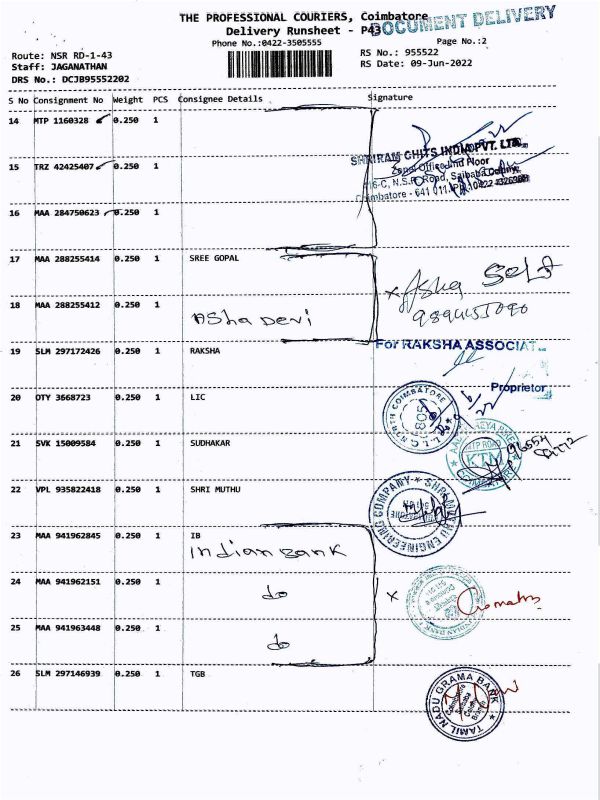 THE PROFESSIONAL COURIERS, Coimbatore
DOCUMENT DELIVERY
Delivery Runsheet - P43
Phone No.:0422-3505555
Page No.:2
Route: NSR RD-1-43
RS No.: 955522
Staff: JAGANATHAN
RS Date: 09-Jun-2022
DRS No.: DCJB95552202
S No Consignment No Weight PCS Consignee Details Signature
14 MTP 1160328 0.250 1
SHRIRAM CHITS INDIA PVT. LTD.
15 TRZ 42425407 0.250 1
Zonal Office: IInd Floor
N.S.R. Road, Saibaba Colony,
Coimbatore - 641 011.
16 MAA 284750623 0.250 1
17 MAA 288255414 0.250 1 SREE GOPAL
Asha Self
18 MAA 288255412 0.250 1
Asha Devi
For RAKSHA ASSOCIAT
19 SLM 297172426 0.250 1 RAKSHA
Proprietor
20 OTY 3668723 0.250 1 LIC
21 SVK 15009584 0.250 1 SUDHAKAR
MTP ROAD
KTM
22 VPL 935822418 0.250 1 SHRI MUTHU
ENGINEERING COMPANY
23 MAA 941962845 0.250 1 IB
Indian Bank
24 MAA 941962151 0.250 1
do
25 MAA 941963448 0.250 1
do
26 SLM 297146939 0.250 1 TGB
TAMIL NADU GRAMA BANK